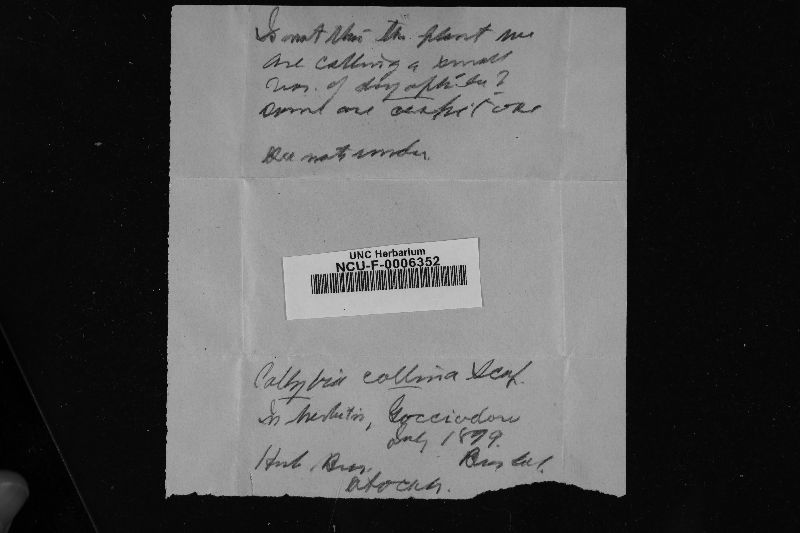 Is not this the plant we
are calling a small
var. of dryophila?
some are cespitose
See note under
UNC Herbarium
NCU-F-0006352
Collybia collina Scop.
In herbetis, Gocciadoro
July 1899
Herb. Bres. Bres. det.